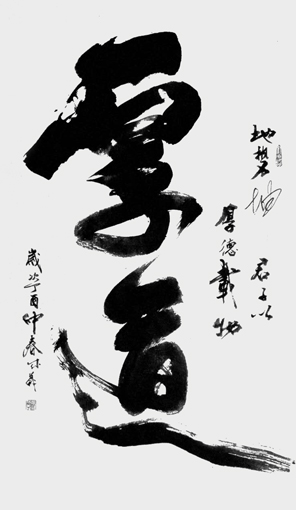 厚道
地勢坤 君子以
厚德載物
歲次丁酉仲春